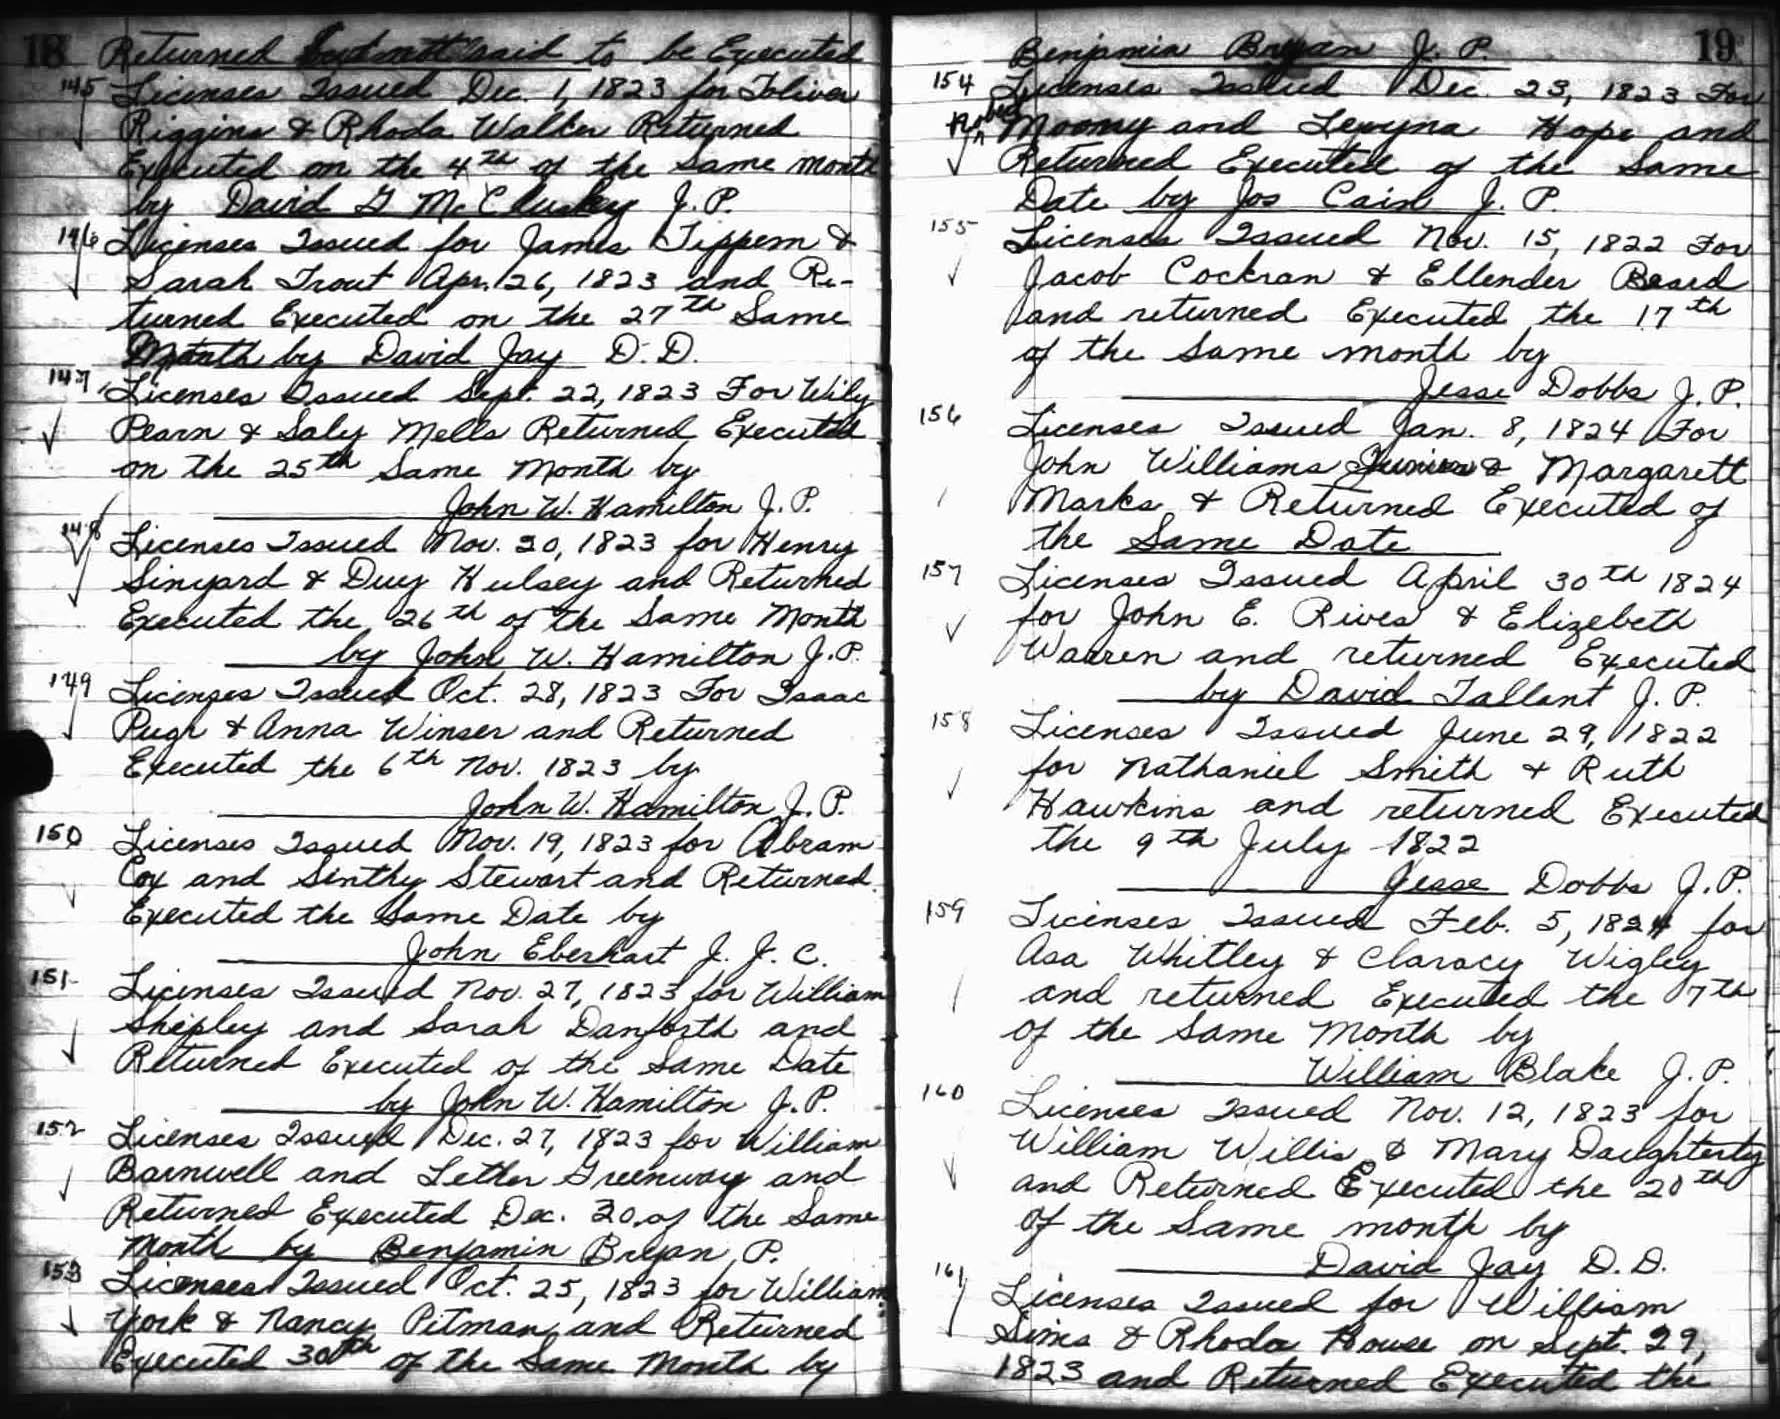 18
Returned said to be Executed
145 Licenses Issued Dec. 1, 1823 for Toliver
Riggins & Rhoda Walker Returned
Executed on the 4th of the Same month
by David G McCluskey J. P.
146 Licenses Issued for James Tippem &
Sarah Trout Apr. 26, 1823 and Re-
turned Executed on the 27th Same
Month by David Jay D. D.
147, Licenses Issued Sept. 22, 1823 For Wily
Pearn & Saly Mells Returned Executed
on the 25th Same Month by
John W. Hamilton J. P.
148 Licenses Issued Nov. 20, 1823 for Henry
Sinyard & Ducy Hulsey and Returned
Executed the 26th of the Same Month
by John W. Hamilton J. P.
149 Licenses Issued Oct. 28, 1823 For Isaac
Pugh & Anna Winser and Returned
Executed the 6th Nov. 1823 by
John W. Hamilton J. P.
150 Licenses Issued Nov. 19, 1823 for Abram
Cox and Sinthy Stewart and Returned
Executed the Same Date by
John Eberhart J. J. C.
151 Licenses Issued Nov. 27, 1823 for William
Shipley and Sarah Danforth and
Returned Executed of the Same Date
by John W. Hamilton J. P.
152 Licenses Issued Dec. 27, 1823 for William
Barnwell and Lether Greenway and
Returned Executed Dec. 30, of the Same
Month by Benjamin Bryan, P.
153 Licenses Issued Oct. 25, 1823 for William
York & Nancy Pitman, and Returned
Executed 30th of the Same Month by
19
Benjamin Bryan J. P.
154 Licenses Issued Dec. 23, 1823 For
Moony and Lewyna Hope and
Returned Executed of the Same
Date by Jos Cain J. P.
155 Licenses Issued Nov. 15, 1822 For
Jacob Cockran & Ellender Beard
and returned Executed the 17th
of the Same month by
Jesse Dobbs J. P.
156 Licenses Issued Jan. 8, 1824 For
John Williams Junior & Margarett
Marks & Returned Executed of
the Same Date
157 Licenses Issued April 30th 1824
for John E. Rives & Elizebeth
Warren and returned Executed
by David Tallant J. P.
158 Licenses Issued June 29, 1822
for Nathaniel Smith & Ruth
Hawkins and returned Executed
the 9th July 1822
Jesse Dobbs J. P.
159 Licenses Issued Feb. 5, 1824 for
Asa Whitley & Claracy Wigley
and returned Executed the 7th
of the Same Month by
William Blake J. P.
160 Licenses Issued Nov. 12, 1823 for
William Willis & Mary Daughterty
and Returned Executed the 20th
of the Same month by
David Jay D. D.
161 Licenses Issued for William
Sims & Rhoda House on Sept. 29,
1823 and Returned Executed the